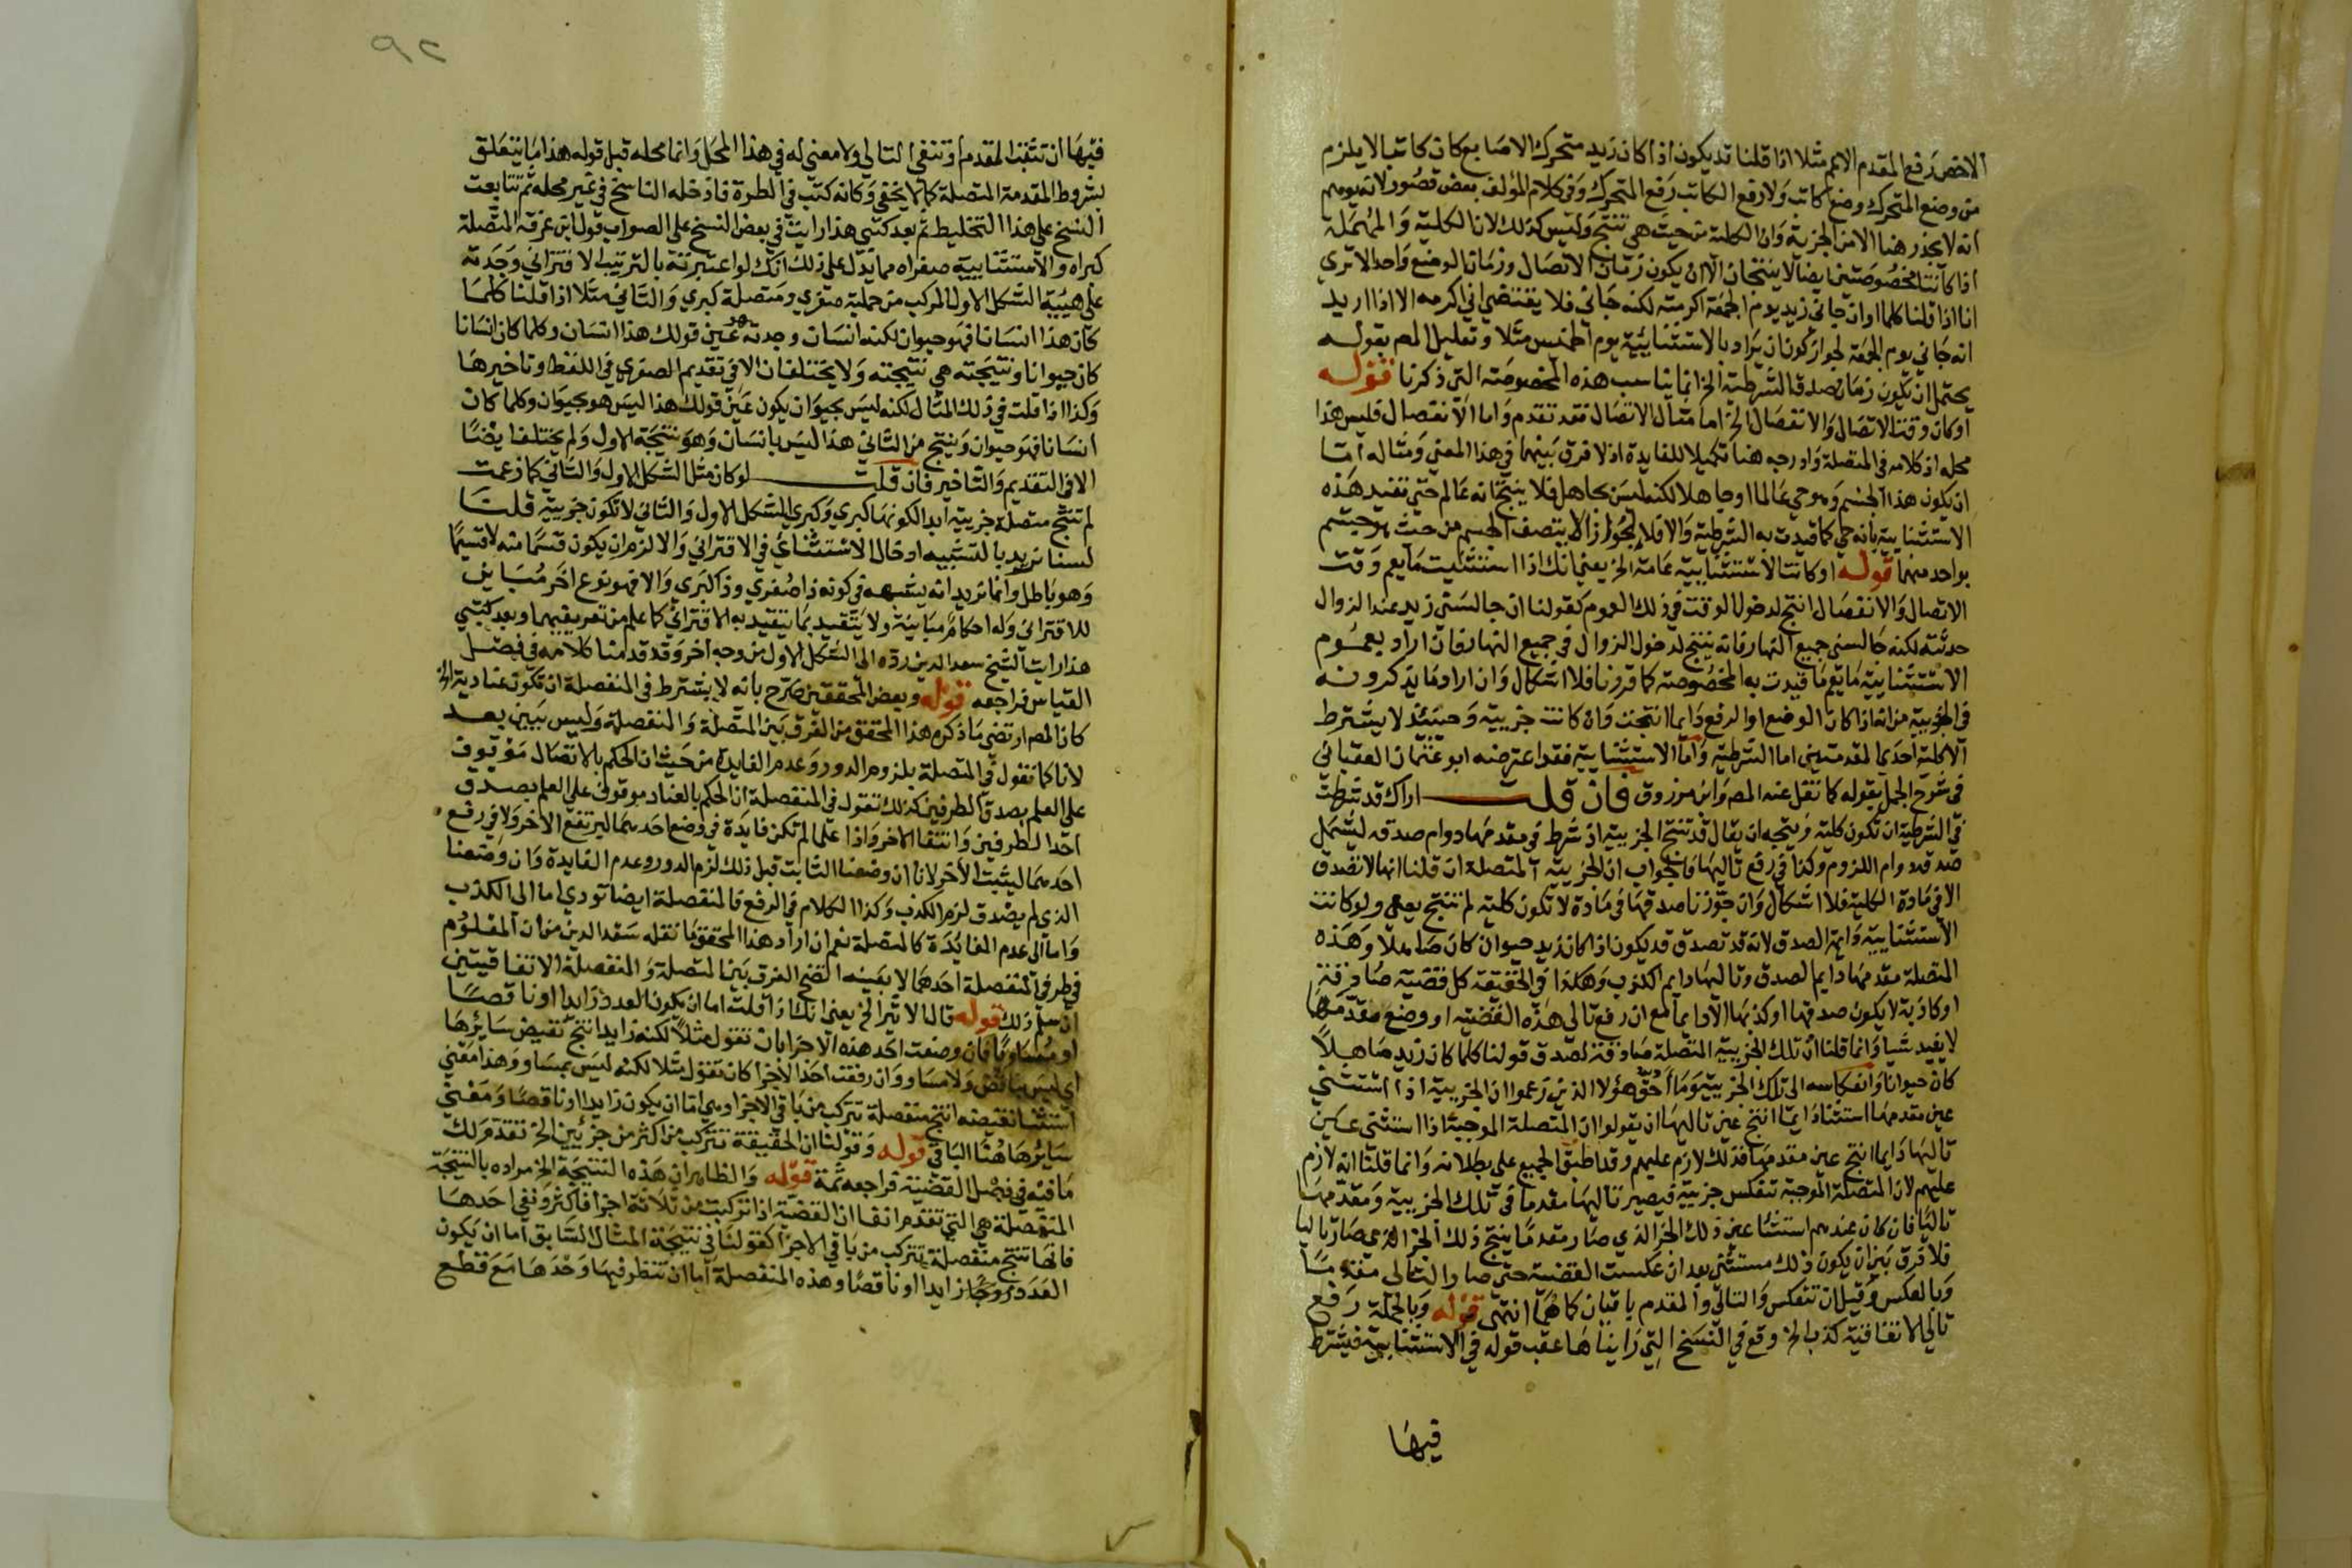 الاخص رفع المقدم الاعم مثلا اذا قلنا قد يكون اذا كان زيد متحرك الاصابع كان كاتبا لا يلزم
من وضع المتحرك وضع كاتب ولا رفع الكاتب رفع المتحرك وفي كلام المؤلف بعض قصور لانه يوهم
انه لا يحذر هنا الا من الجزية وان الكلية من حيث هي تنتج وليس كذلك لان الكلية والمهملة
اذا كانتا مخصوصتين ايضا لا ينتجان الا ان يكون زمان الاتصال وزمان الوضع واحد الا تري
انا اذا قلنا كلما او ان جاني زيد يوم الجمعة اكرمته لكنه جاني فلا يقتضي اني اكرمه الا اذا اريد
انه جاني يوم الجمعة لجواز كون ان يراد بالاستثنائية يوم الخميس مثلا وتعليل المص بقوله
يحتمل ان يكون زمان صدق الشرطية الخ انما يناسب هذه المخصوصة التي ذكرنا قوله
او كان وقت الاتصال والانفصال الخ اما مثال الاتصال فقد تقدم واما الانفصال فليس هذا
محله اذ كلامه في المتصلة وادرجه هنا تكميلا للفايدة اذ لا فرق بينهما في هذا المعني ومثاله اما
ان يكون هذا الجسم وهو حي عالما او جاهلا لكنه ليس بجاهل فلا ينتج انه عالم حتي تقيد هذه
الاستثنايية بانه حي كما قيدت به الشرطية والا فلا لجواز ان لا يتصف الجسم من حيث هو جسم
بواحد منهما قوله او كانت الاستثنايية عامة الخ يعني انك اذا استثنيت ما يعم وقت
الاتصال والانفصال انتج لدخول الوقت في ذلك العموم كقولنا ان جالسني زيد عند الزوال
حدثته لكنه جالسني جميع النهار فانه ينتج لدخول الزوال في جميع النهار فان اراد بعموم
الاستثنايية ما يعم ما قيدت به المخصوصة كما قررنا فلا اشكال وان اراد ما يذكرونه
في الجزيية من انه اذا كان الوضع او الرفع دايما انتجت وان كانت جزيية وحينئذ لا يشترط
الا كلية احدي المقدمتين اما الشرطية واما الاستثنايية فقد اعترضه ابو عثمان العقباني
في شرح الجمل بقوله كما نقل عنه المص وابن مرزوق فان قلت اراك قد شرطت
في الشرطية ان تكون كلية ويتجه ان يقال قد تنتج الجزيية اذ شرط في مقدمها دوام صدقه ليشمل
صدقه دوام اللزوم وكذا في رفع تاليها فالجواب ان الجزيية المتصلة ان قلنا انها لا تصدق
الا في مادة الكلية فلا اشكال وان جوزنا صدقها في مادة لا تكون كلية لم تنتج يعني ولو كانت
الاستثنايية دايمة الصدق لانه قد تصدق قد يكون اذا كان زيد حيوان كان صاهلا وهذه
المتصلة مقدمها دايم الصدق وتاليها دايم الكذب وهكذا في الحقيقة كل قضية صادقة
او كاذبة لا يكون صدقها او كذبها الا دايما مع ان رفع تالي هذه القضية او وضع مقدمها
لا يفيد شيا وانما قلنا ان تلك الجزيية المتصلة صادقة لصدق قولنا كلما كان زيد صاهلا
كان حيوانا وانعكاسه الي تلك الجزيية وما احق هؤلا الذين زعموا ان الجزيية اذا استثني
عين مقدمها استثنا دايما انتج عين تاليها ان يقولوا ان المتصلة الموجبة اذا استثني عين
تاليها دايما انتج عين مقدمها فذلك لازم عليهم وقد اطبق الجميع علي بطلانه وانما قلنا انه لازم
عليهم لان المتصلة الموجبة تنعكس جزيية فيصير تاليها مقدما في تلك الجزيية ومقدمها
تاليا فان كان عندهم استثنا عين ذلك الجز الذي صار مقدما ينتج ذلك الجز الذي صار تاليا
فلا فرق بين ان يكون ذلك مستثني بعد ان عكست القضية حتي صار التالي مقدما
وبالعكس وقبل ان تنعكس والتالي والمقدم باقيان كما هما انتهي قوله وبالجملة رفع
تالي الاتفاقية كذب الخ وقع في النسخ التي رايناها عقب قوله في الاستثنايية فيشرط
فيها
٩٢
فيها ان تثبت المقدم او تنفي التالي ولا معني له في هذا المحل وانما محله قبل قوله هذا ما يتعلق
بشروط المقدمة المتصلة كما لا يخفي وكانه كتب في الطرة فادخله الناسخ في غير محله ثم تتابعت
النسخ علي هذا التخليط ثم بعد كتبي هذا رايت في بعض النسخ علي الصواب قول ابن عرفة المتصلة
كبراه والاستثنايية صغراه مما يدل علي ذلك انك لو اعتبرته بالترتيب الاقتراني وجدته
علي هيية الشكل الاول المركب من حملية صغري ومتصلة كبري والثاني مثلا اذا قلنا كلما
كان هذا انسانا فهو حيوان لكنه انسان وجدته عين قولك هذا انسان وكلما كان انسانا
كان حيوانا ونتيجته هي نتيجته ولا يختلفان الا في تقديم الصغري في اللفظ وتاخيرها
وكذا اذا قلت في ذلك المثال لكنه ليس بحيوان يكون عين قولك هذا ليس هو بحيوان وكلما كان
انسانا فهو حيوان وينتج من الثاني هذا ليس بانسان وهو نتيجة الاول ولم يختلفا ايضا
الا في التقديم والتاخير فان قلت لو كان مثل الشكل الاول والثاني كما زعمت
لم تنتج متصلة جزيية ابدا لكونها كبري وكبري الشكل الاول والثاني لا تكون جزيية قلنا
لسنا نريد بالتشبيه ادخال الاستثنائي في الاقتراني والا لزم ان يكون قسما منه لا قسيما
وهو باطل وانما نريد انه يشبهه في كونه ذا صغري وذا كبري والا فهو نوع اخر مباين
للاقتراني وله احكام مباينة ولا يتقيد بما يتقيد به الاقتراني كما علم من تعريفيهما وبعد كتبي
هذا رايت الشيخ سعد الدين رده الي الشكل الاول من وجه اخر وقد قدمنا كلامه في فصل
القياس فراجعه قوله وبعض المحققين صرح بانه لا يشترط في المنفصلة ان تكون عنادية الخ
كان المص ارتضي ما ذكره هذا المحقق من الفرق بين المتصلة والمنفصلة وليس ببين بعد
لانا كما نقول في المتصلة بلزوم الدور وعدم الفايدة من حيث ان الحكم بالاتصال موقوف
علي العلم بصدق الطرفين كذلك نقول في المنفصلة ان الحكم بالعناد موقوف علي العلم بصدق
احد الطرفين وانتفا الاخر واذا علما لم تكن فايدة في وضع احدهما ليرتفع الاخر ولا في رفع
احدهما ليثبت الاخر لانا ان وضعنا الثابت قبل ذلك لزم الدور وعدم الفايدة وان وضعنا
الذي لم يصدق لزم الكذب وكذا الكلام في الرفع فالمنفصلة ايضا تودي اما الي الكذب
واما الي عدم الفائدة كالمتصلة نعم ان اراد هذا المحقق ما نقله سعد الدين من ان المعلوم
في طرفي المنفصلة احدهما لا بعينه اتضح الفرق بين المتصلة والمنفصلة الاتفاقيتين
ان سلم ذلك قوله قال الا تير الخ يعني انك اذا قلت اما ان يكون العدد زايدا او ناقصا
او مساويا فان وضعت احد هذه الاجزا بان تقول مثلا لكنه زايد انتج نقيض سايرها
اي ليس بناقص ولا مساو وان رفعت احد الاجزا كان تقول مثلا لكنه ليس بمساو وهذا معني
استثنا نقيضه انتج منفصلة تتركب من باقي الاجزا وهي اما ان يكون زايدا او ناقصا ومعني
سايرها هنا الباقي قوله وقولنا ان الحقيقة تتركب من اكثر من جزئين الخ تقدم لك
ما فيه في فصل القضية فراجعه ثمة قوله والظاهر ان هذه النتيجة الخ مراده بالنتيجة
المنفصلة هي التي تقدم انفا ان القضية اذا تركبت من ثلاثة اجزا فاكثر ونفي احدها
فانها تنتج منفصلة تتركب من باقي الاجزا كقولنا في نتيجة المثال السابق اما ان يكون
العدد زايدا او ناقصا وهذه المنفصلة اما ان تنظر فيها وحدها مع قطع